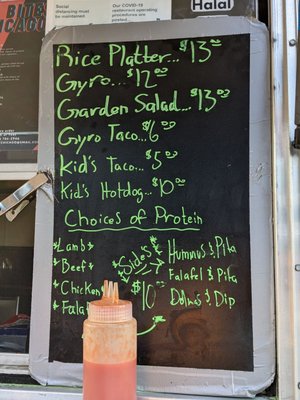 Halal
Social distancing must be maintained
Our COVID-19 restaurant operating procedures are posted
Rice Platter... $13.00
Gyro... $12.00
Garden Salad... $13.00
Gyro Taco... $6.00
Kid's Taco... $5.00
Kid's Hotdog... $10.00
Choices of Protein
*Lamb*
*Beef*
*Chicken
*Fala
*Sides*
$10.00
Humnus & Pita
Falafel & Pita
Dolma's & Dip